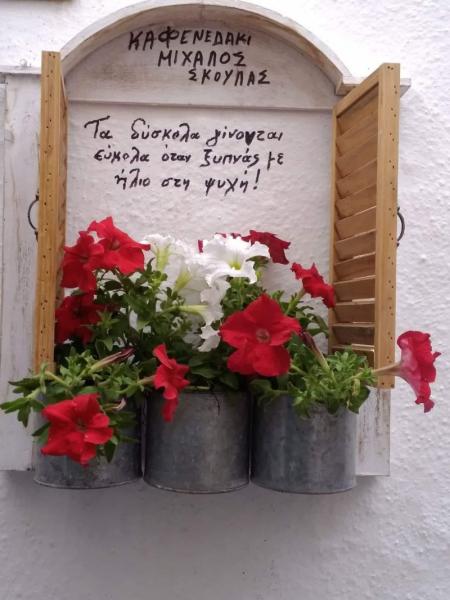 ΚΑΦΕΝΕΔΑΚΙ
ΜΙΧΑΛΟΣ
ΣΚΟΥΛΑΣ
Τα δύσκολα γίνονται
εύκολα όταν ξυπνάς με
ήλιο στη ψυχή!